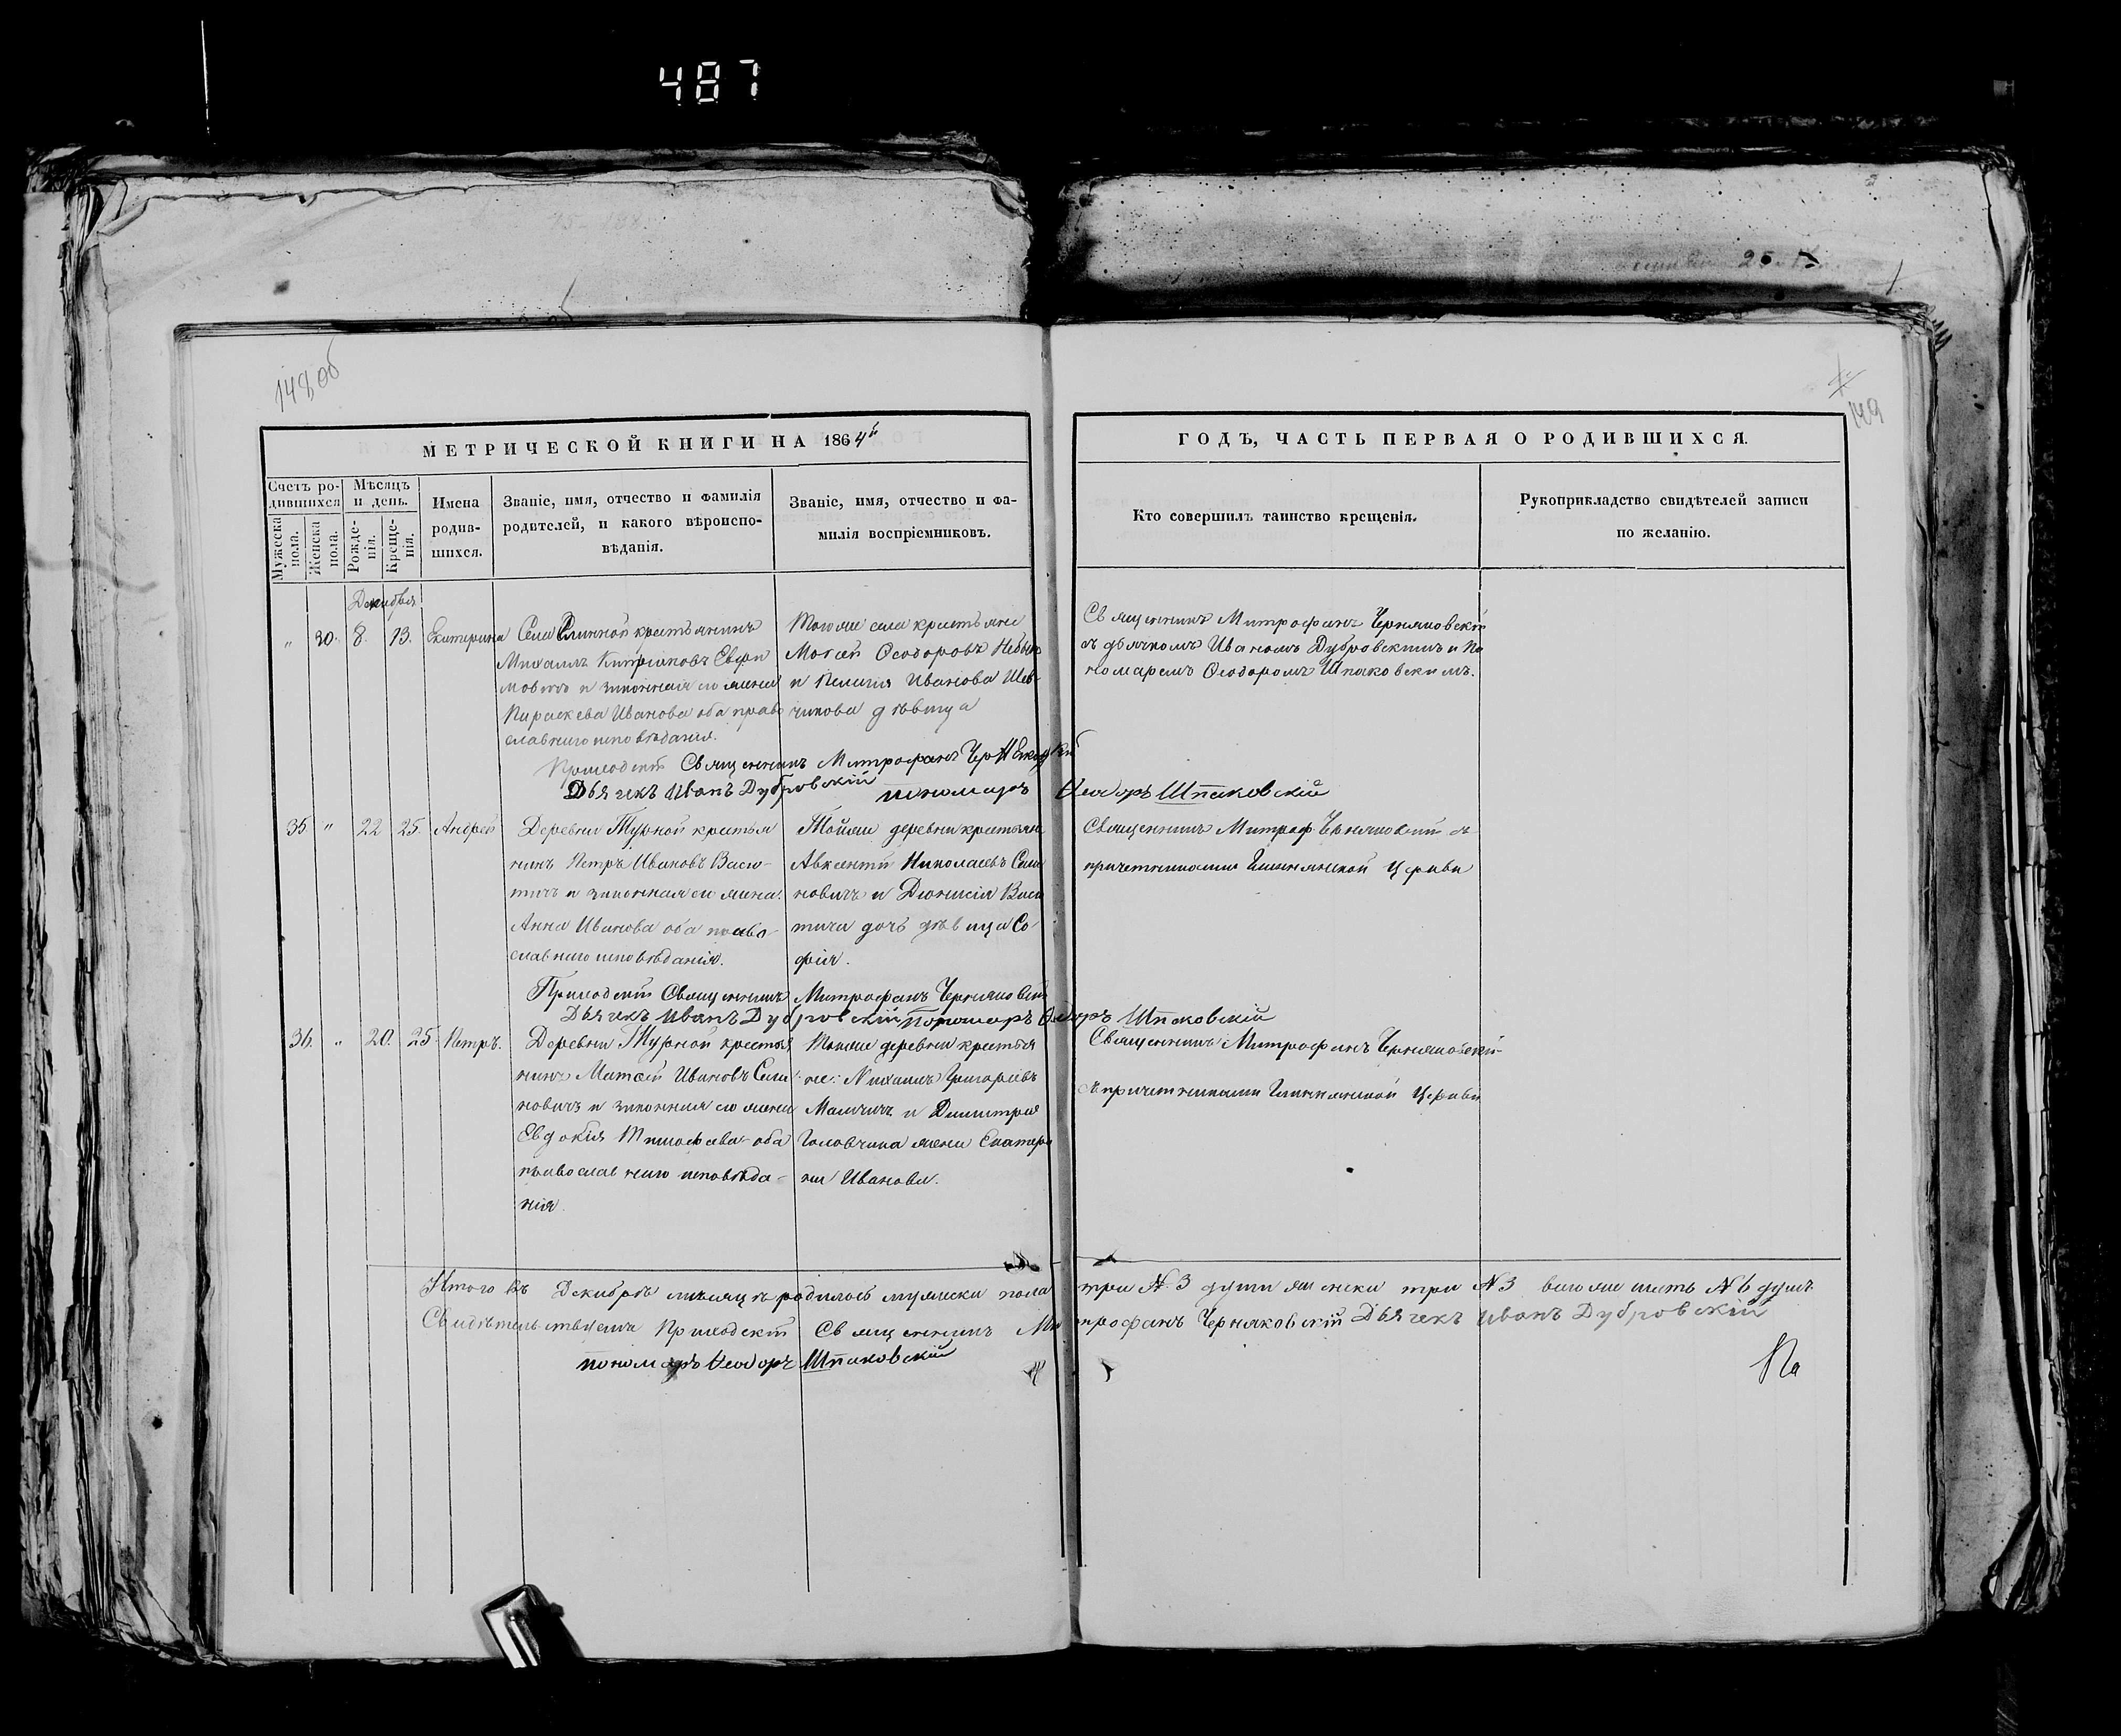 487
148об
149
МЕТРИЧЕСКОЙ КНИГИ НА 1864й
ГОДЪ, ЧАСТЬ ПЕРВАЯ О РОДИВШИХСЯ.
Счетъ ро-
дившихся
Мѣсяцъ
и день.
Мужеска
пола.
Женска
пола.
Рожде-
нія.
Креще-
нія.
Имена
родив-
шихся.
Званіе, имя, отчество и фамилія
родителей, и какого вѣроиспо-
вѣданія.
Званіе, имя, отчество и фа-
милія воспріемниковъ.
Кто совершилъ таинство крещенія.
Рукоприкладство свидѣтелей записи
по желанію.
Декабря
" 30. 8. 13. Екатерина
Села Глинной крестьянинъ
Михаилъ
и законная его жена
Параскева Иванова оба право
славнаго исповѣданія.
Тогоже села крестьяне
Мосей Ѳеодоровъ
и Пелагія Иванова Шев-
чикова дѣвица
Священникъ Митрофанъ Черняковскій
съ дьячкомъ Иваномъ Дубровскимъ и По
номаремъ Ѳеодоромъ Шпаковскимъ.
Приходскій Священникъ Митрофанъ Черняковскій
Дьячекъ Иванъ Дубровскій пономарь Ѳеодоръ Шпаковскій
35 " 22 25. Андрей
Деревни Турной крестья
нинъ Петръ Ивановъ Васю-
тичъ и законная его жена
Анна Иванова оба право-
славнаго исповѣданія.
Тойже деревни крестьян
Авксентій Николаевъ Сели
новичъ и Діонисія Васю
тича дочь дѣвица Со
фія.
Священникъ Митроф. Черняковскій съ
причетниками Глиннянской Церкви
Приходскій Священникъ Митрофанъ Черняковскій
Дьячекъ Иванъ Дубровскій пономарь Ѳеодоръ Шпаковскій
36. " 20. 25 Петръ.
Деревни Турной крестья
нинъ Матѳей Ивановъ Сели
новичъ и законная его жена
Евдокія Тимоѳеева оба
православнаго исповѣда-
нія.
Тойже деревни крестья
не: Михаилъ Григорьевъ
Маличъ и Димитрія
Головчика жена Екатери
на Иванова.
Священникъ Митрофанъ Черняковскій
съ причетниками Глиннянской Церкви
Итого въ Декабрѣ мѣсяцѣ родилось мужеска пола три №3 души женска три №3 всего же шесть №6 душъ
Свидѣтельствуемъ Приходскій Священникъ Митрофанъ Черняковскій Дьячекъ Иванъ Дубровскій
пономарь Ѳеодоръ Шпаковскій
По